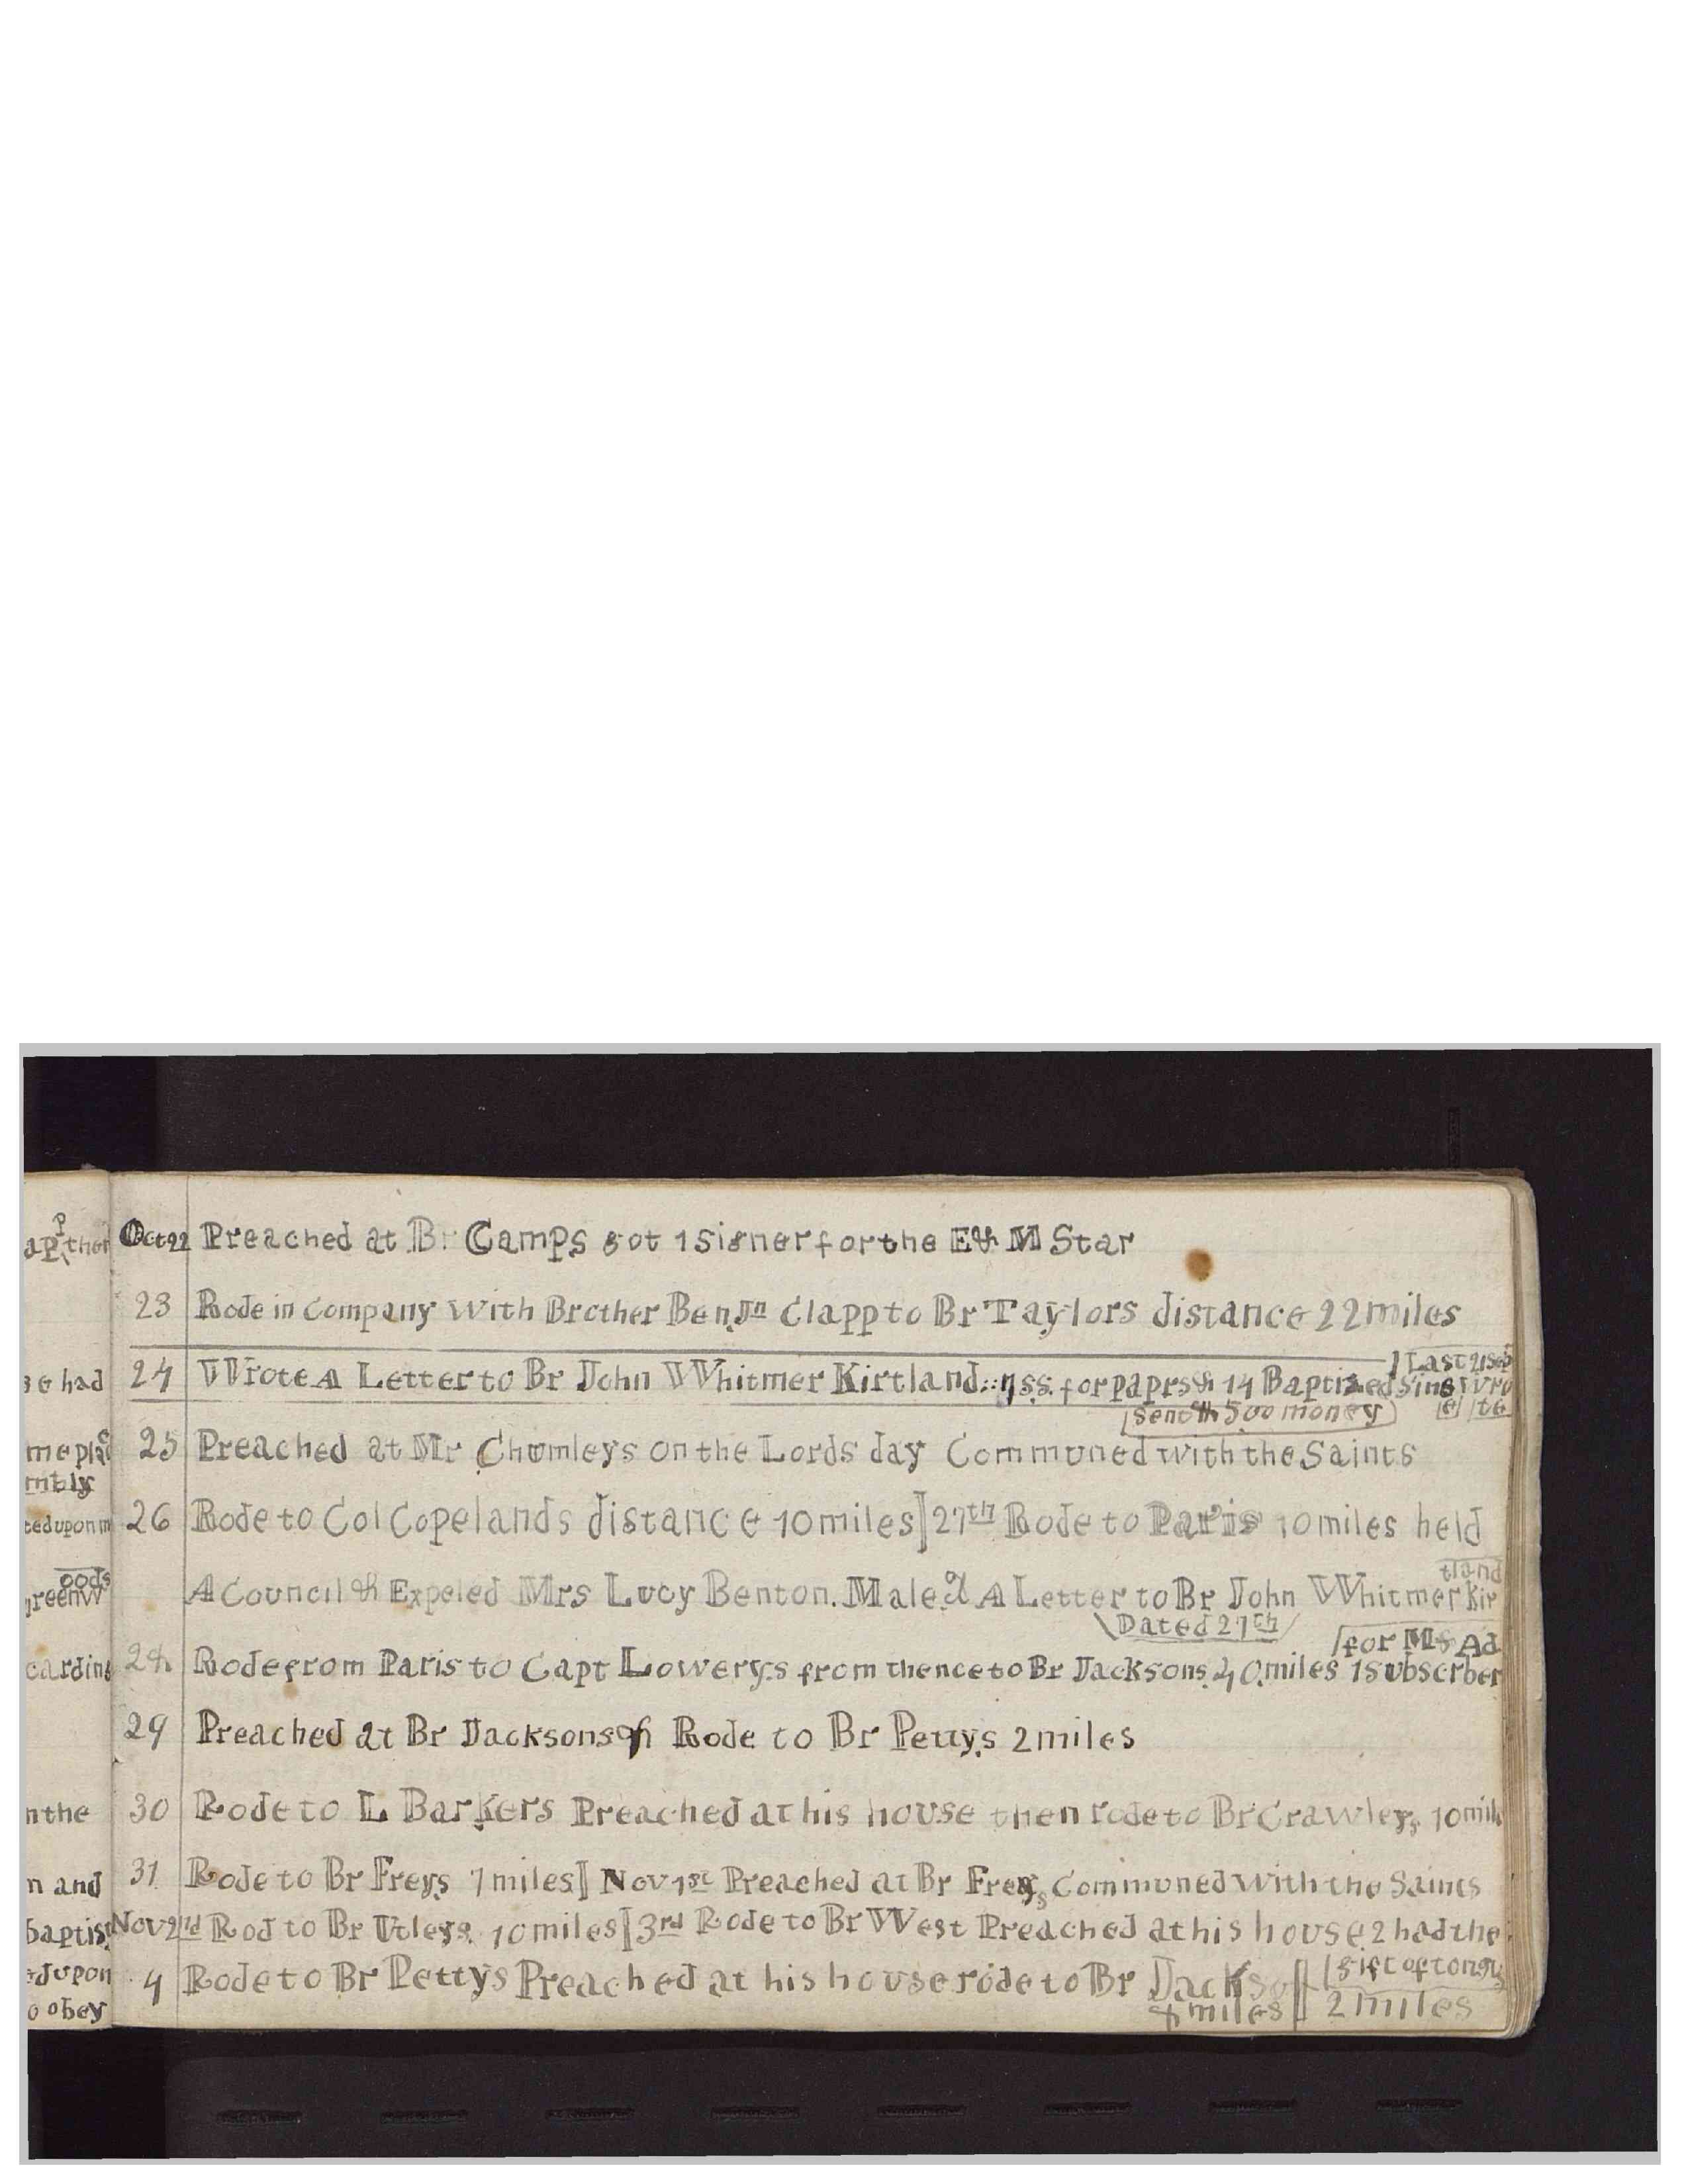 Oct 22 Preached at Br Camps got 1 signer for the E & M Star
23 Rode in Company With Brother Benjn Clapp to Br Taylors distance 22 miles
24 Wrote A Letter to Br John Whitmer Kirtland for paprs & 14 Baptized Sinse Last 21 Sep Wrote
Sent 5 00 money
25 Preached at Mr Chumleys on the Lords day Communed with the Saints
26 Rode to Col Copelands distance 10 miles] 27th Rode to Paris 10 miles held
A Council & Expeled Mrs Lucy Benton. Maled A Letter to Br John Whitmer Kirtland
Dated 27th
28 Rode from Paris to Capt Lowerys from thence to Br Jacksons 40 miles 1 subscrber for Ms Ad
29 Preached at Br Jacksons & Rode to Br Pettys 2 miles
30 Rode to L Barkers Preached at his house then rode to Br Crawleys 10 mile
31 Rode to Br Freys 7 miles] Nov 1st Preached at Br Freys Communed with the Saints
Nov 2nd Rod to Br Utleys 10 miles] 3rd Rode to Br West Preached at his house 2 had the
gift of tongs
4 Rode to Br Pettys Preached at his house rode to Br Jackso
miles 2 miles